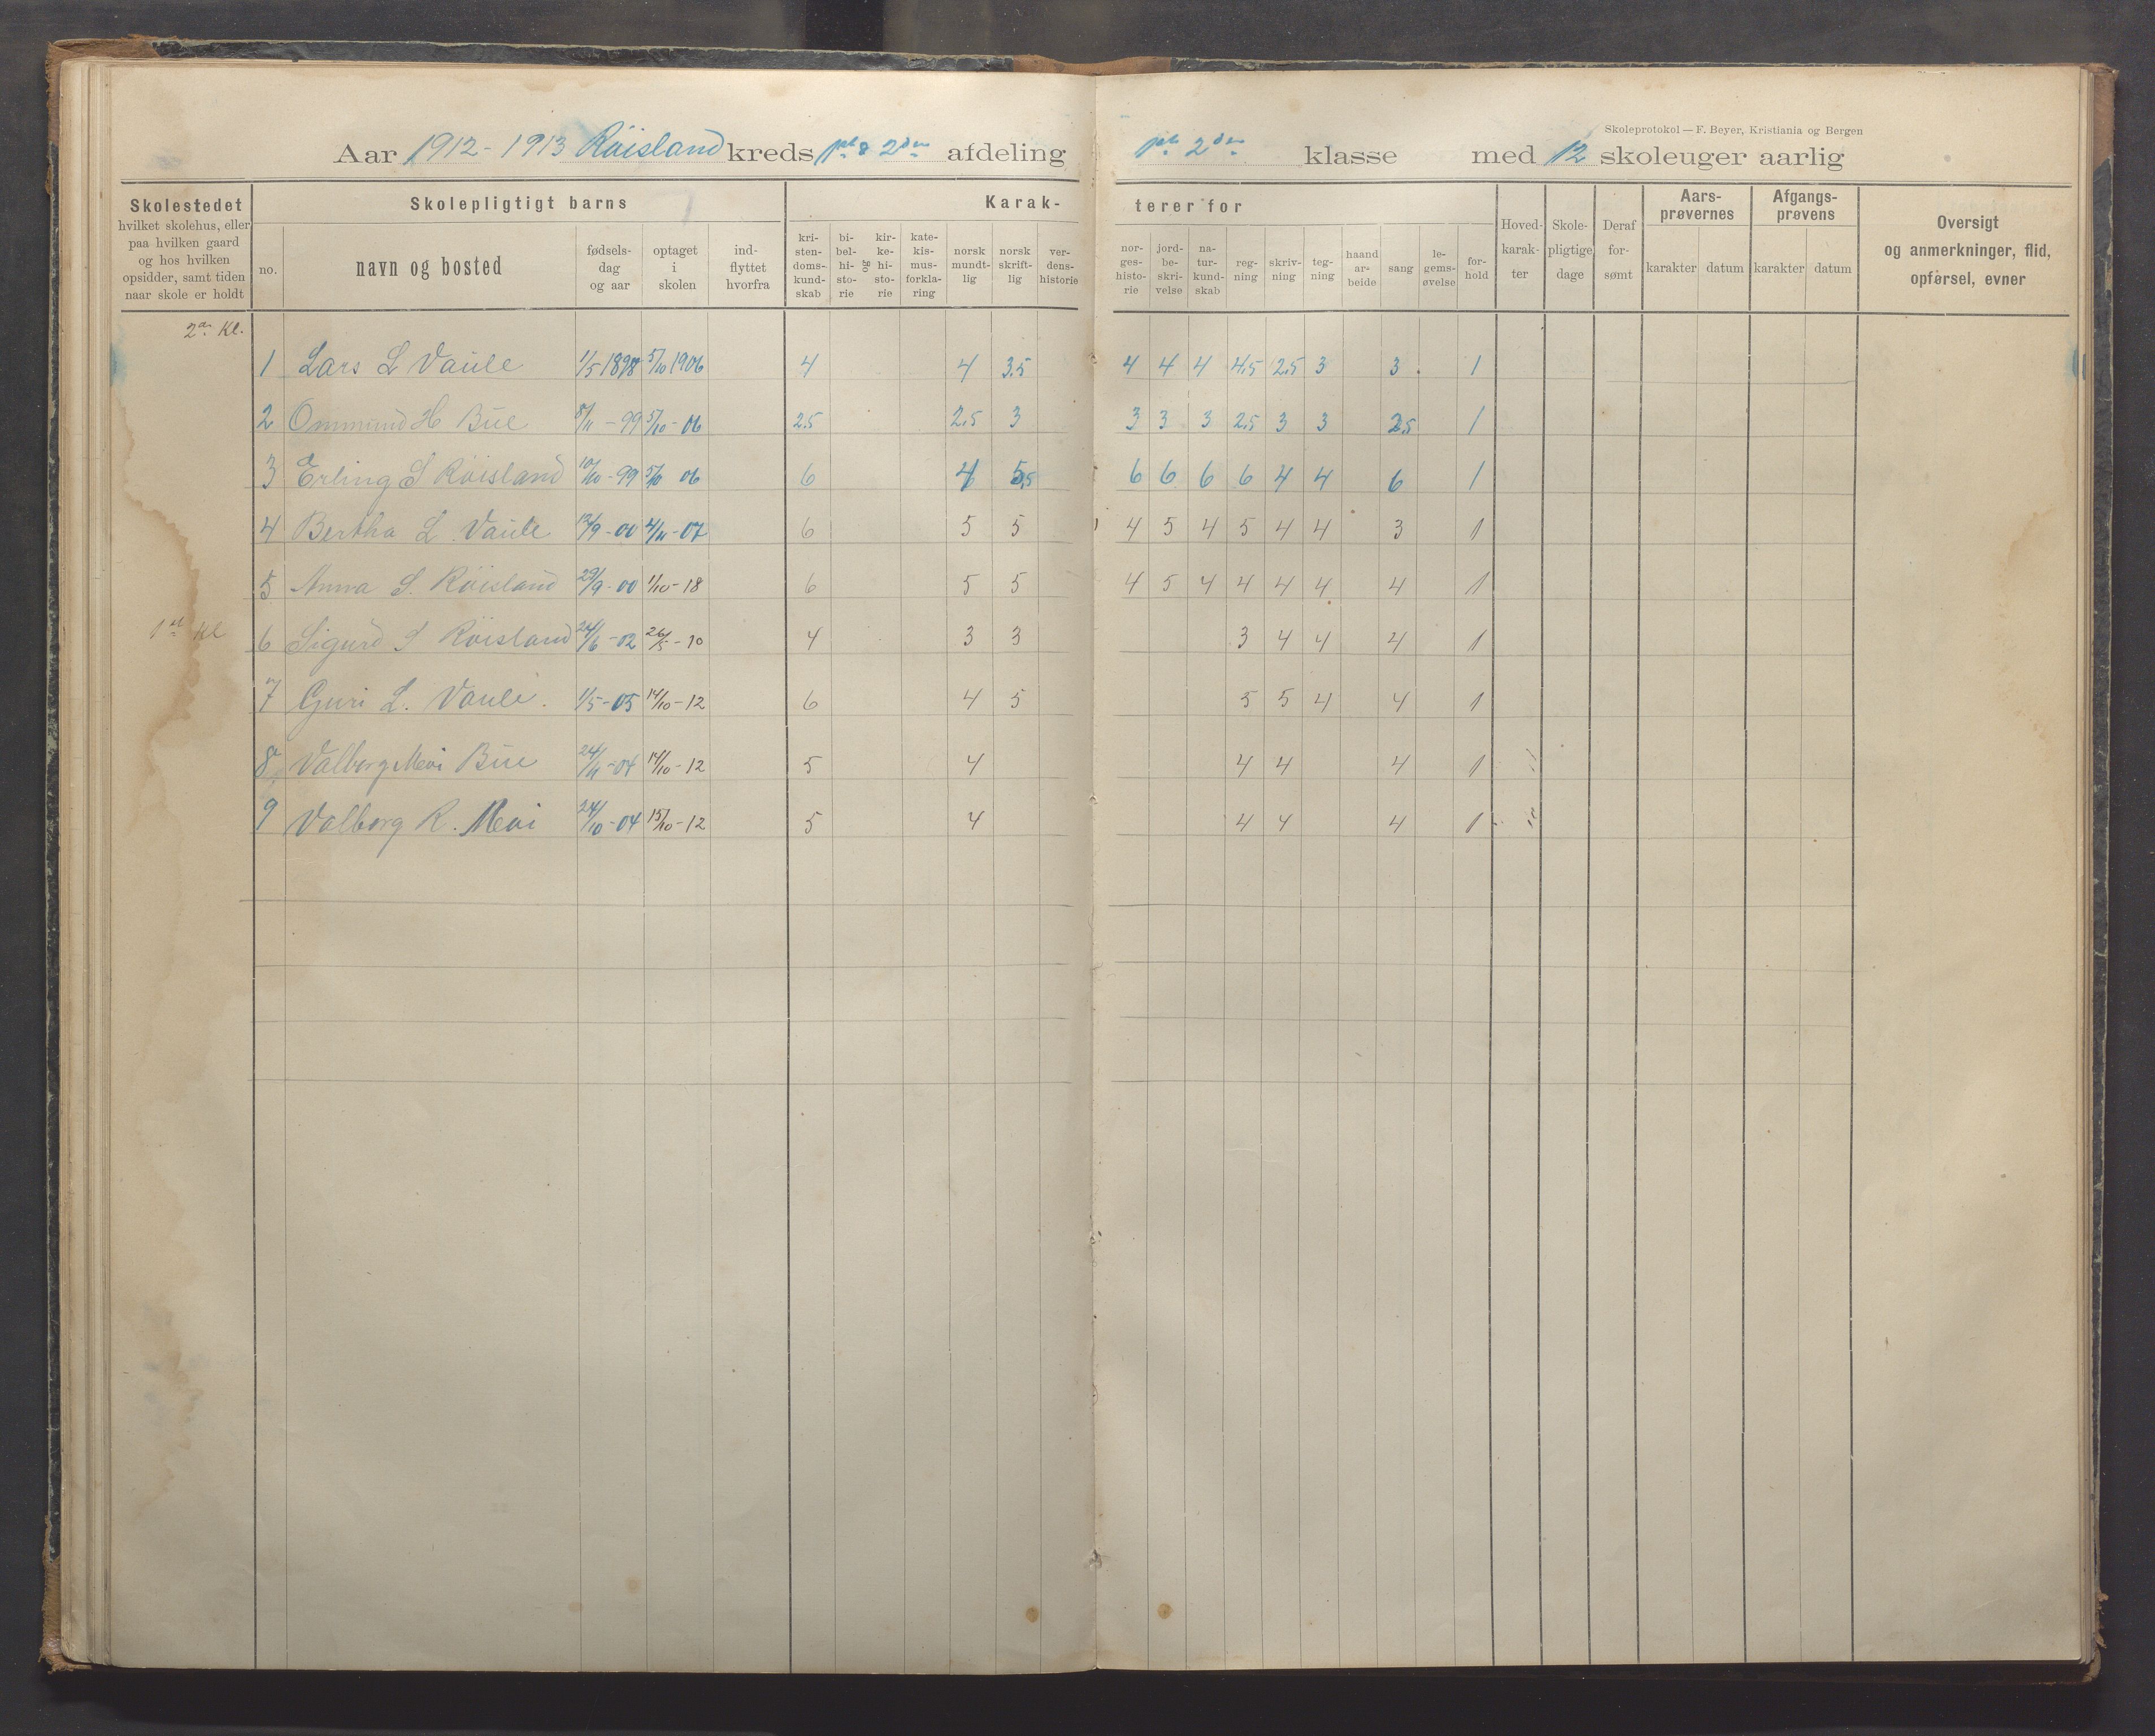 Skoleprotokol — F. Beyer, Kristiania og Bergen
Aar 1912-1913 Röisland kreds 1ste & 2den afdeling 1ste 2den klasse med 12 skoleuger aarlig
Skolestedet
hvilket skolehus, eller
paa hvilken gaard
og hos hvilken
opsidder, samt tiden
naar skole er holdt
Skolepligtigt barns
no.
navn og bosted
fødsels-
dag
og aar
optaget
i
skolen
ind-
flyttet
hvorfra
Karak-
kri-
sten-
doms-
kund-
skab
bi-
bel-
hi-
sto-
rie
og
kir-
ke-
hi-
sto-
rie
kate-
kis-
mus-
forkla-
ring
norsk
mundt-
lig
norsk
skrift-
lig
ver-
dens-
historie
terer for
nor-
ges-
histo-
rie
jord-
be-
skri-
velse
na-
tur-
kund-
skab
reg-
ning
skriv-
ning
teg-
ning
haand
ar-
beide
sang
le-
gems-
øvelse
for-
hold
Hoved-
karak-
ter
Skole-
pligtige
dage
Deraf
for-
sømt
Aars-
prøvernes
karakter datum
Afgangs-
prøvens
karakter datum
Oversigt
og anmerkninger, flid,
opførsel, evner
2den Kl.
1 Lars L Vaule 1/5 1898 5/10 1906 4 4 3.5 4 4 4 4.5 2.5 3 3 1
2 Ommund H Bue 8/11 - 99 5/10 - 06 2.5 2.5 3 3 3 3 2.5 3 3 2.5 1
3 Erling S Röisland 10/10 - 99 5/10 06 6 4 5.5 6 6 6 6 4 4 6 1
4 Bertha L. Vaule 12/9 - 00 4/11 - 07 6 5 5 4 5 4 5 4 4 3 1
5 Anna S. Röisland 29/9 - 00 1/10 - 18 6 5 5 4 5 4 4 4 4 4 1
1ste Kl
6 Sigurd S Röisland 24/6 - 02 26/5 - 10 4 3 3 3 4 4 4 1
7 Guri L. Vaule. 1/5 - 05 14/10 - 12 6 4 5 5 5 4 4 1
8 Valborg Meoi Bue 24/11 - 04 14/10 - 12 5 4 4 4 4 1
9 Valborg R. Meoi 24/10 - 04 15/10 - 12 5 4 4 4 4 1